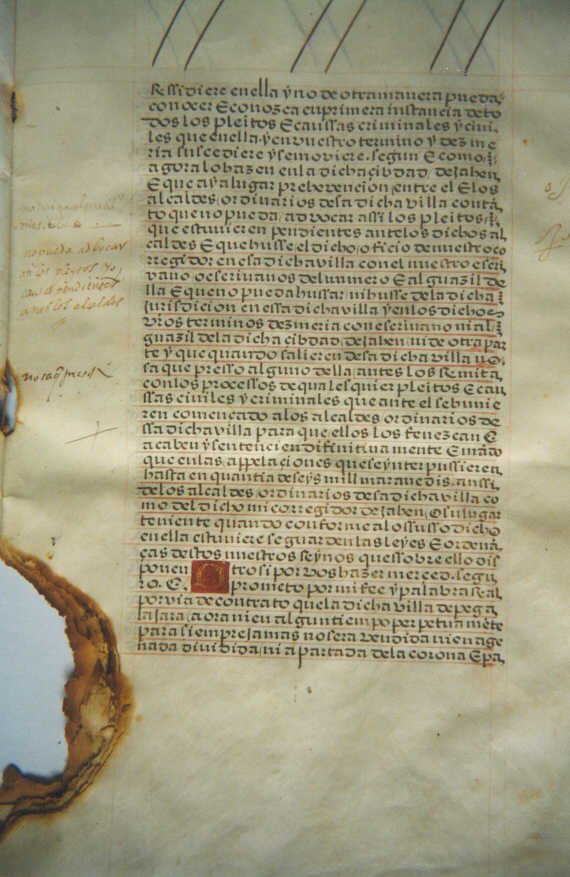 Residiere en ella y no de otra manera pueda
conocer E conozca en primera instancia de to
dos los pleitos E caussas criminales y civi
les que en ella y en vuestro termino y dezme
ria suscediere y se moviere. segun E como
agora lo hazen en la dicha çibdad, de Jahen,
E que aya lugar prebencion, entre El E los
alcaldes, ordinarios desa dicha villa conta
to que no pueda, advocar assi los pleitos,
que estuvieren pendientes ante los dichos al
caldes E que husse, el dicho, oficio de nuestro co
rregidor en esa dicha villa con el nuestro escri
vano o escrivanos del numero E alguazil de
lla E que no pueda hussar ni husse de la dicha
jurisdicion en essa dicha villa y en los dichos
vros terminos dezmeria con escrivano ni al
guazil de la dicha cibdad, de Jahen, ni de otra par
te y que quando saliere desa dicha villa no
saque presso alguno della, antes los Remita
con los processos de quales quier pleitos E cau
ssas civiles y criminales que ante el se hunie
ren començado a los alcaldes ordinarios de
ssa dicha villa para que ellos los fenezcan E
acaben y sentencien difinitivamente E mando
que en las appelaçiones que se ynterpussieren,
hasta en quantia de seys mill maravedis, anssi
de los alcaldes, ordinarios desa dicha villa co
mo del dicho mi corregidor de Jahen, o su lugar
teniente quando conforme a lo sussodicho
en ella estuviere se guarden las leyes E ordena
ças destos nuestros Reynos que ssobre ello dis
ponen Otrosi por vos hazer merced. segu
ro. E. prometo por mi fee y palabra Real
por via de contrato que la dicha villa de pega
lajara, aora ni en algun tiempo perpetuamete
para siempre jamas no sera vendida ni enage
nada dividida, ni apartada de la corona E pa
no pueda adbocar
a si los pleytos
que pendieren
ante los alcaldes
no saq presos